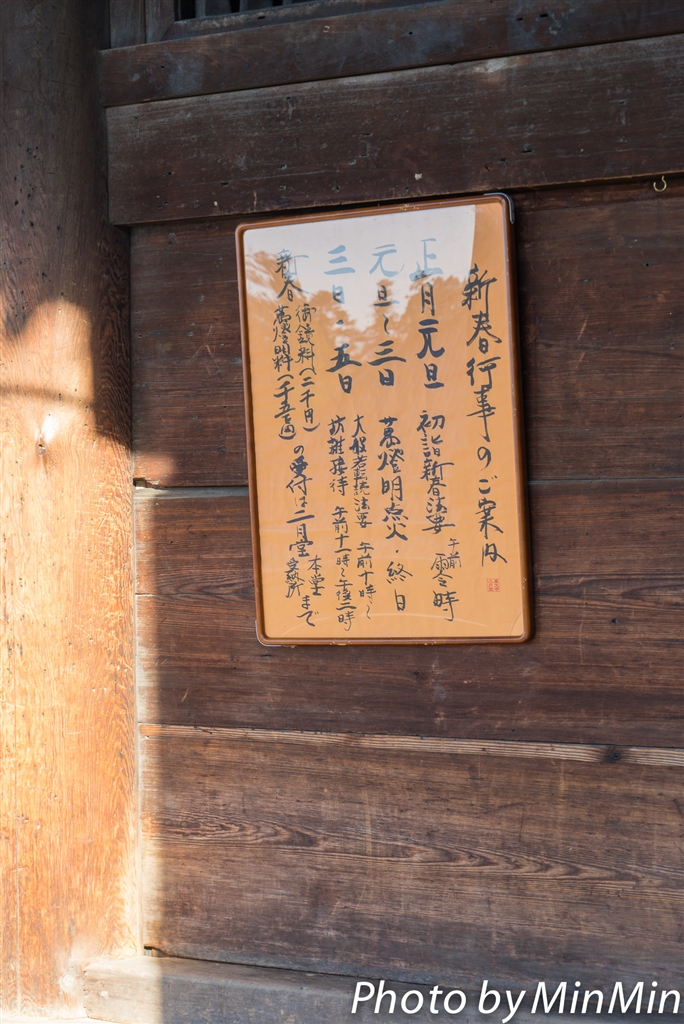 新春行事のご案内
正月元旦 初詣新春法要 午前零時
元旦～三日 萬燈明点火・終日
三日・五日 大般若転読法要 午前十時～
訪雅接待 午前十一時～午後二時
新春 御鏡料(二千円)
萬燈明料(千五百円) の受付は二月堂 本堂
まで
Photo by MinMin